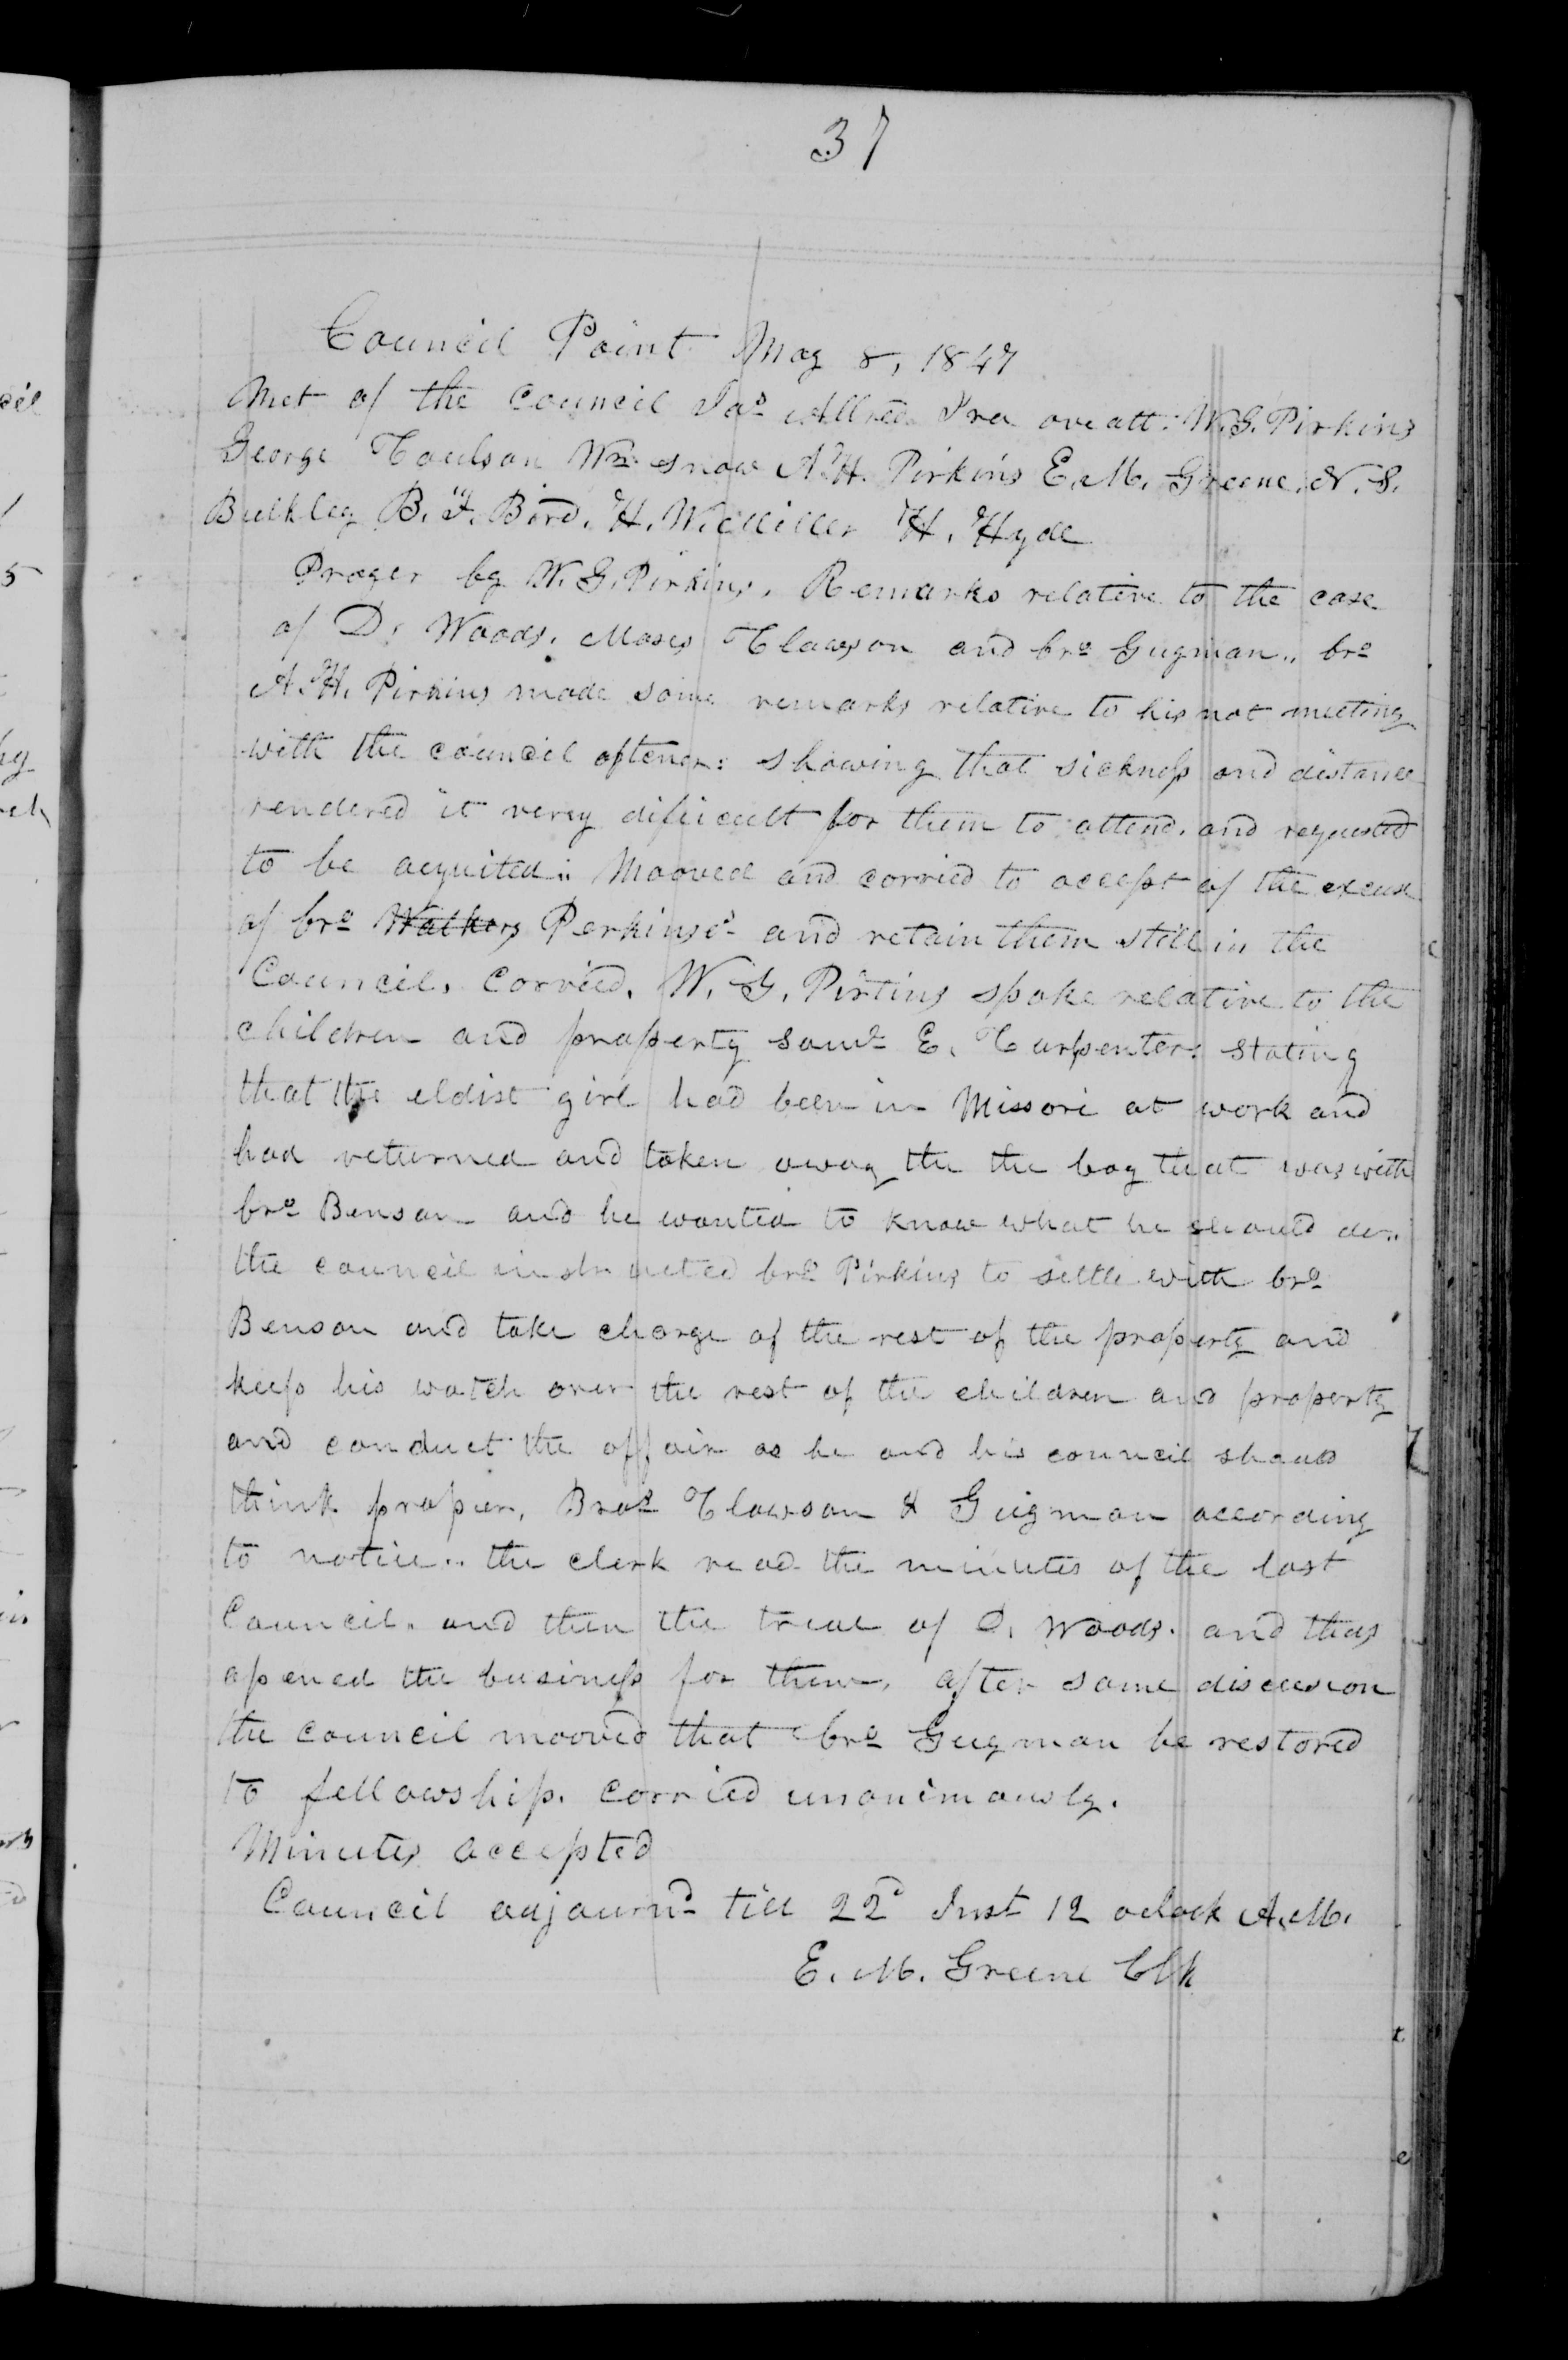 37
Council Point May 8, 1847
Met of the council Jas Allred Ira oveatt. W. G. Pirkins
George Coulson Wm snow A. H. Pirkins E. M. Greene, N. S.
Bulkley B. F. Bord. H. W. Miller H. Hyde
Prayer by W. G. Pirkins, Remarks relative to the case
of D. Woods. Moses Clawson and bro Guyman,, bro
A. H. Pirkins made some remarks relative to his not meeting
with the council oftener: showing that sickness and distance
rendered it verry dificult for them to attend. and requested
to be acquited.. Mooved and corried to accept of the excuse
of bro Walkers Perkinses and retain them still in the
Council, Corried. W. G. Pirtins spoke relative to the
children and property Saml E. Carpenter: stating
that the eldist girl had been in Missori at work and
had returned and taken away the the boy that was with
bro Benson and he wanted to know what he should do..
the council instructed bro Pirkins to settle with bro
Benson and take charge of the rest of the property and
keep his watch over the rest of the children and property
and conduct the affair as he and his council should
think proper, Bros Clawson & Guigman according
to notice.. the clerk read the minutes of the last
Council. and then the treal of D. Woods. and thus
opened the business for them, after some discussion
the council mooved that bro Guyman be restored
to fellowship. corried unonimously.
Minutes accepted
Council adjournd till 22d Inst 12 oclock A. M.
E. M. Greene Clk